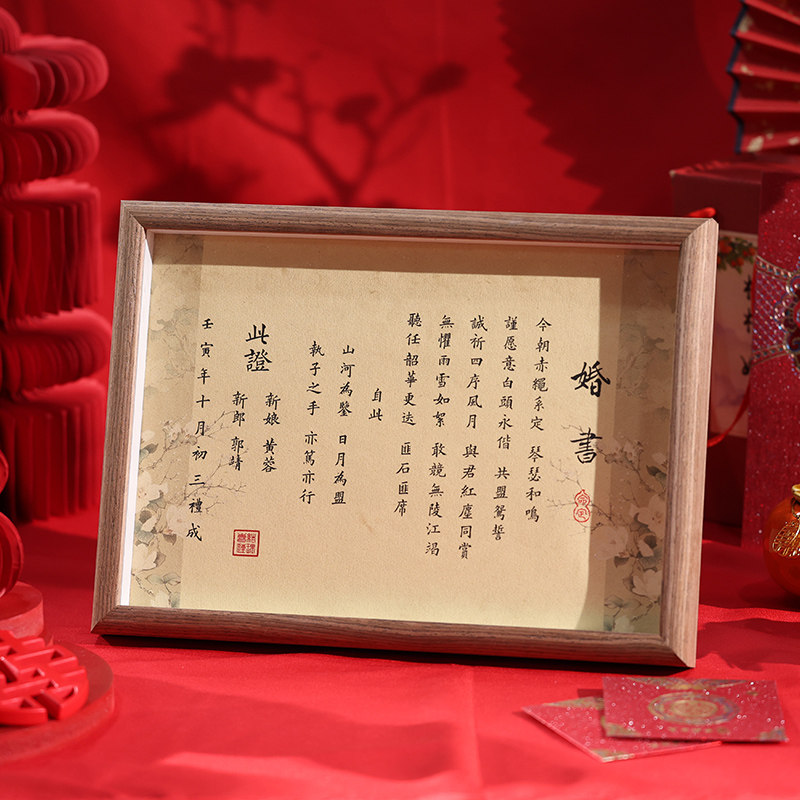 婚書
今朝赤繩系定 琴瑟和鳴
謹愿意白頭永偕 共盟鴛誓
誠祈四序風月 與君紅塵同賞
無懼雨雪如絮 敢競無陵江渴
聽任韶華更迭 匪石匪席
自此
山河為鑒 日月為盟
執子之手 亦篤亦行
此證
新娘 黃蓉
新郎 郭靖
壬寅年十月初三禮成